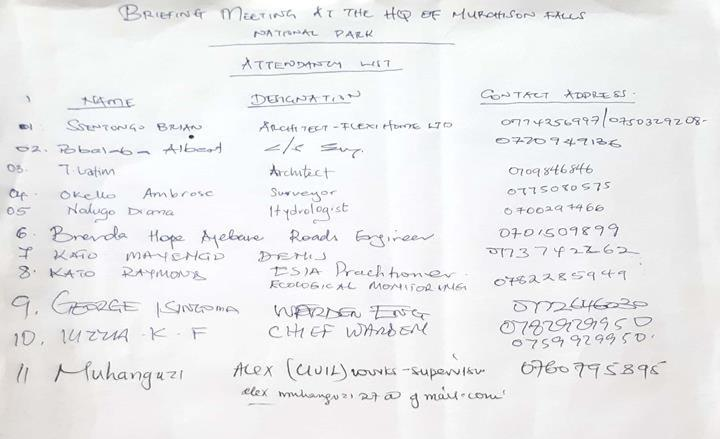 BRIEFING MEETING AT THE HQ OF MURCHISON FALLS
NATIONAL PARK
ATTENDANCY LIST
NAME DESIGNATION CONTACT ADDRESS.
01 SSENTONGO BRIAN ARCHITECT - FLEXI HOME LTD 0774256997/0750329208-
02. Albert C/S 0770949136
03. T. Latim Architect 0709846846
04. Okello Ambrose Surveyor 0775080575
05 Nalugo Diana Hydrologist 0700297466
6. Brenda Hope Ayebare Roads Engineer 0701509899
7 KATO MAYENGO DENIS 0773742262
8. KATO RAYMOND ESIA Practitioner. 0782285949
ECOLOGICAL MONITORING
9. GEORGE ISINGOMA WARDEN ENG 0772646030
10. K. F CHIEF WARDEN 0782929950
0759929950.
11 Muhanguzi ALEX (CIVIL) works-supervisor 0760795895
alex muhanguzi 27@gmail.com